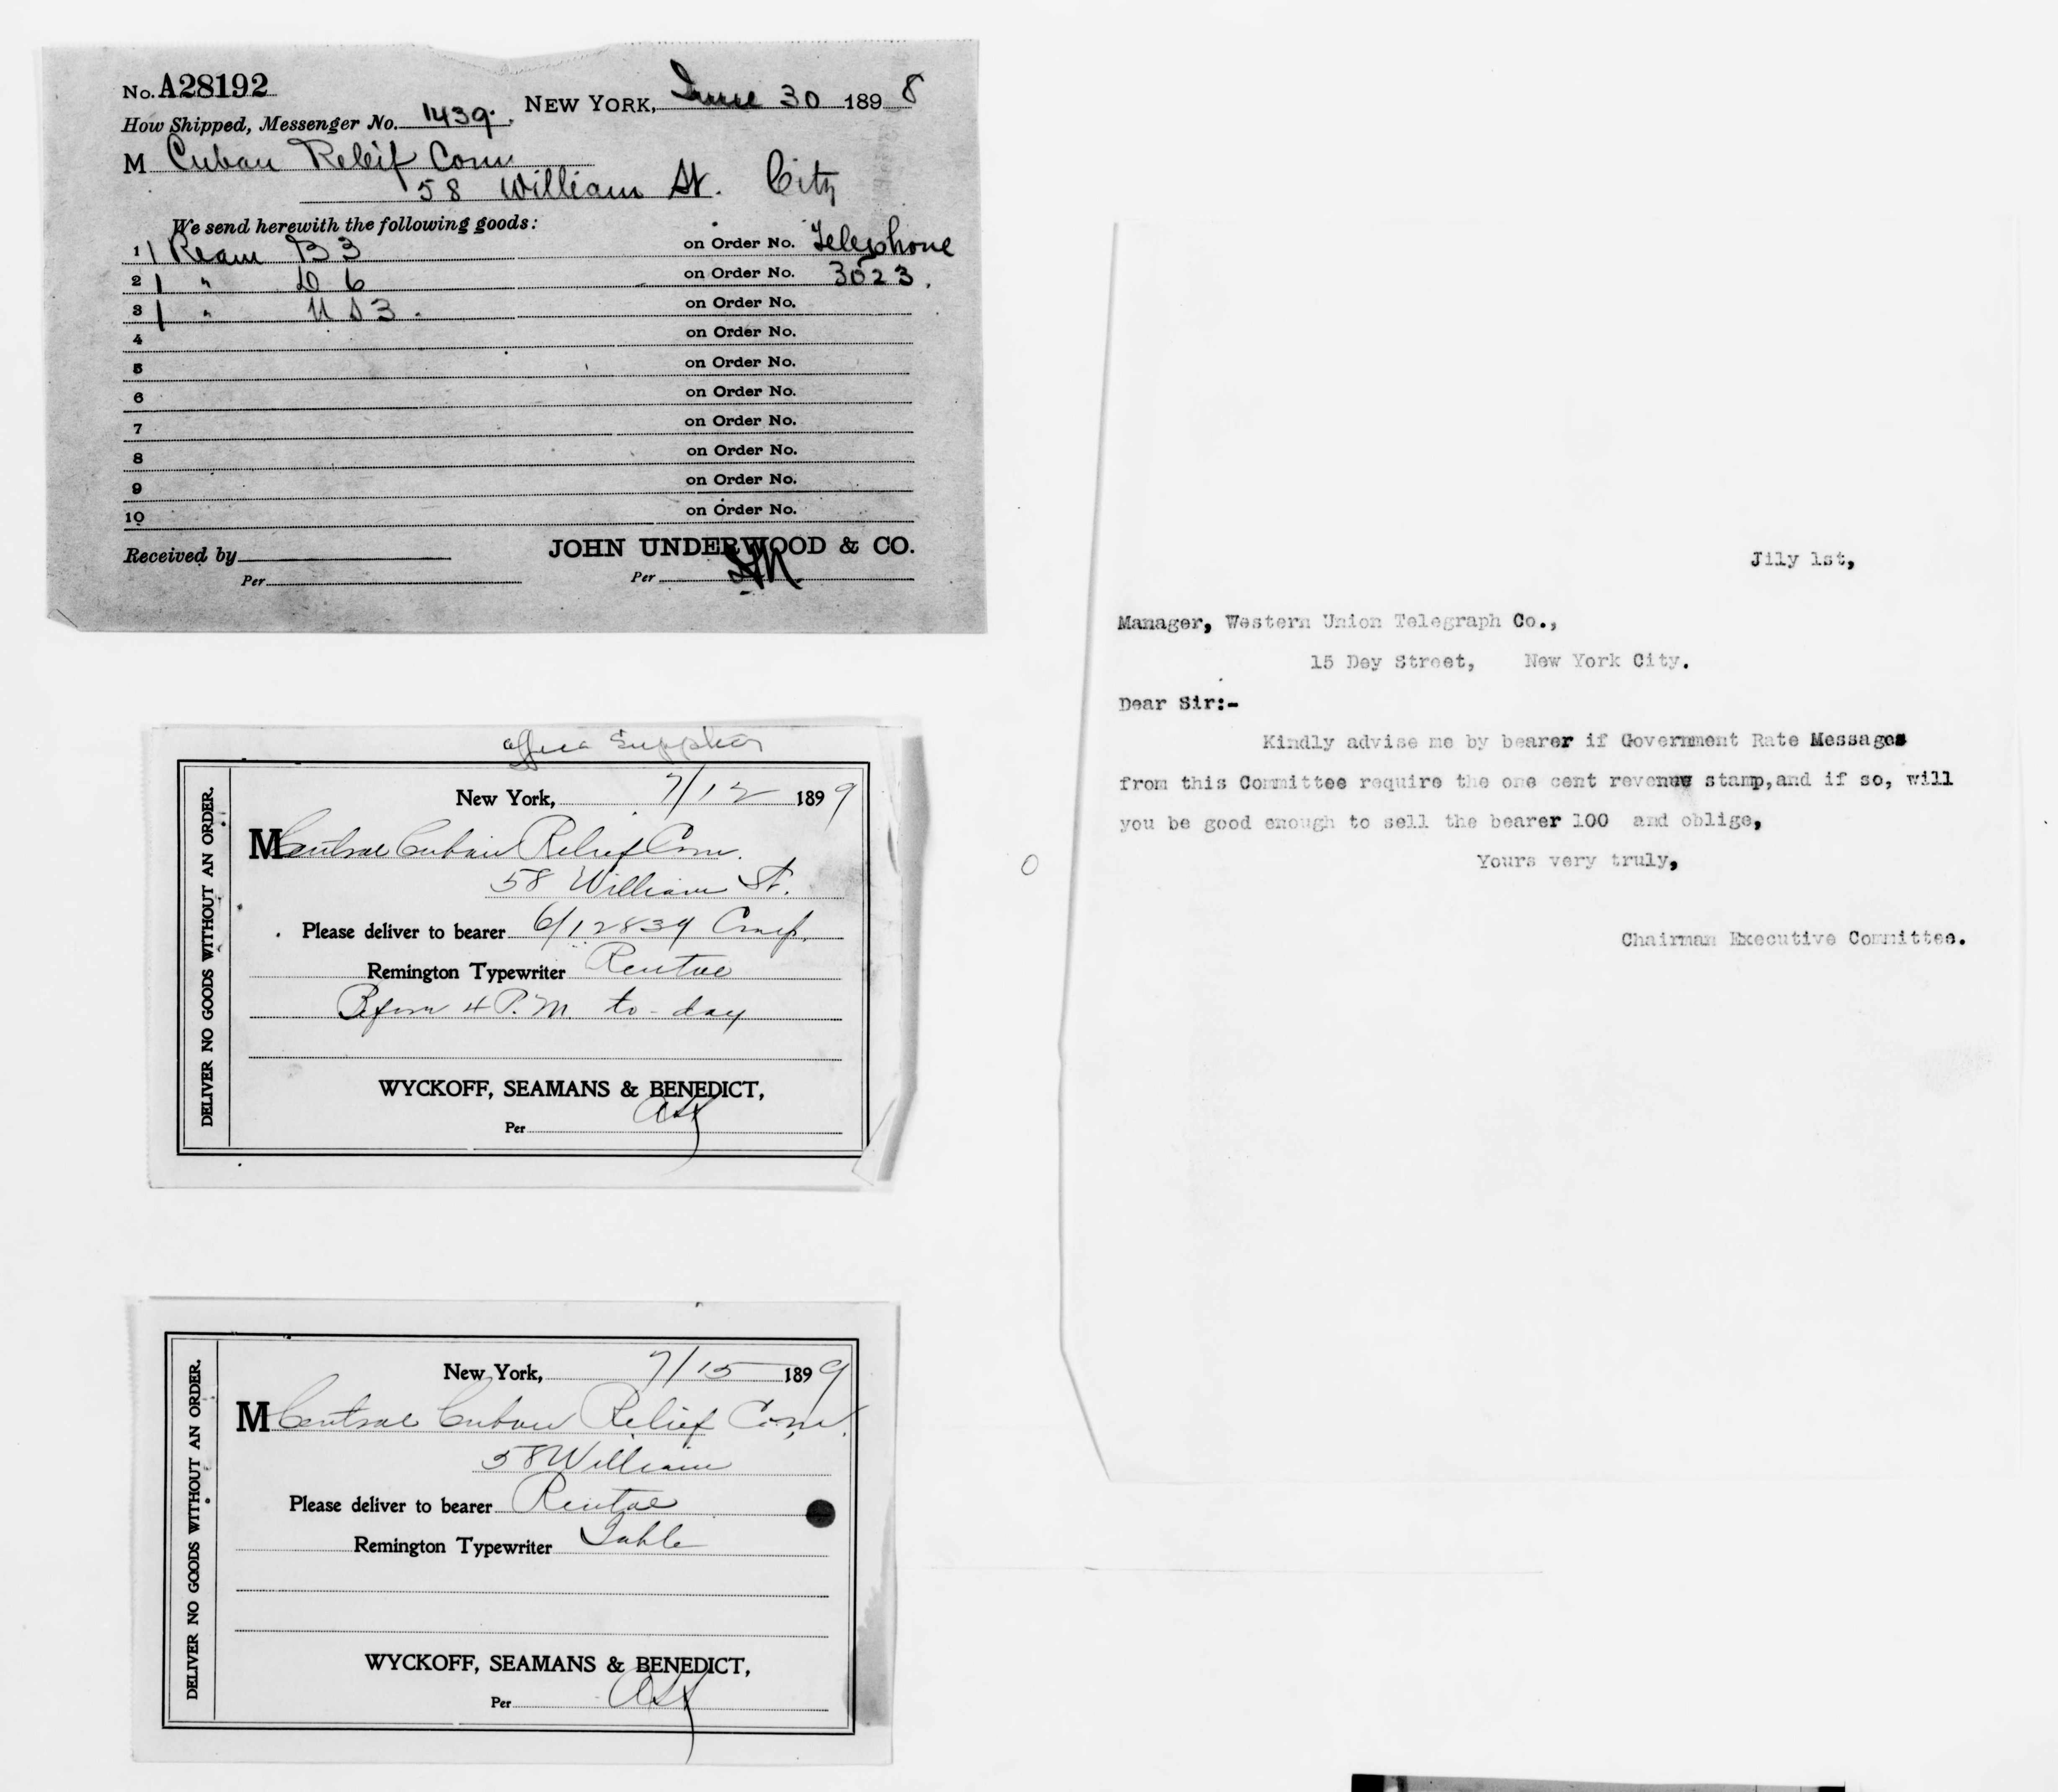 No. A28192
NEW YORK, June 30 1898
How Shipped, Messenger No. 1439.
M Cuban Releif Com
58 William St. City
We send herewith the following goods:
1 1 Ream B 3 on Order No. Telephone
2 1 " D 6 on Order No. 3023.
3 1 " U S 3. on Order No.
4 on Order No.
5 on Order No.
6 on Order No.
7 on Order No.
8 on Order No.
9 on Order No.
10 on Order No.
Received by
JOHN UNDERWOOD & CO.
Per
Per
Office Supplies
DELIVER NO GOODS WITHOUT AN ORDER.
New York, 7/12 1899
M Central Cuban Relief Com.
58 William St.
Please deliver to bearer 6/12839
Remington Typewriter Rental
Before 4 P.M. to-day
WYCKOFF, SEAMANS & BENEDICT,
Per
DELIVER NO GOODS WITHOUT AN ORDER.
New York, 7/15 1899
M Central Cuban Relief Com.
58 William
Please deliver to bearer Rental
Remington Typewriter Table
WYCKOFF, SEAMANS & BENEDICT,
Per
Jily 1st,
Manager, Western Union Telegraph Co.,
15 Dey Street, New York City.
Dear Sir:-
Kindly advise me by bearer if Government Rate Messages
from this Committee require the one cent revenue stamp,and if so, will
you be good enough to sell the bearer 100 and oblige,
Yours very truly,
Chairman Executive Committee.